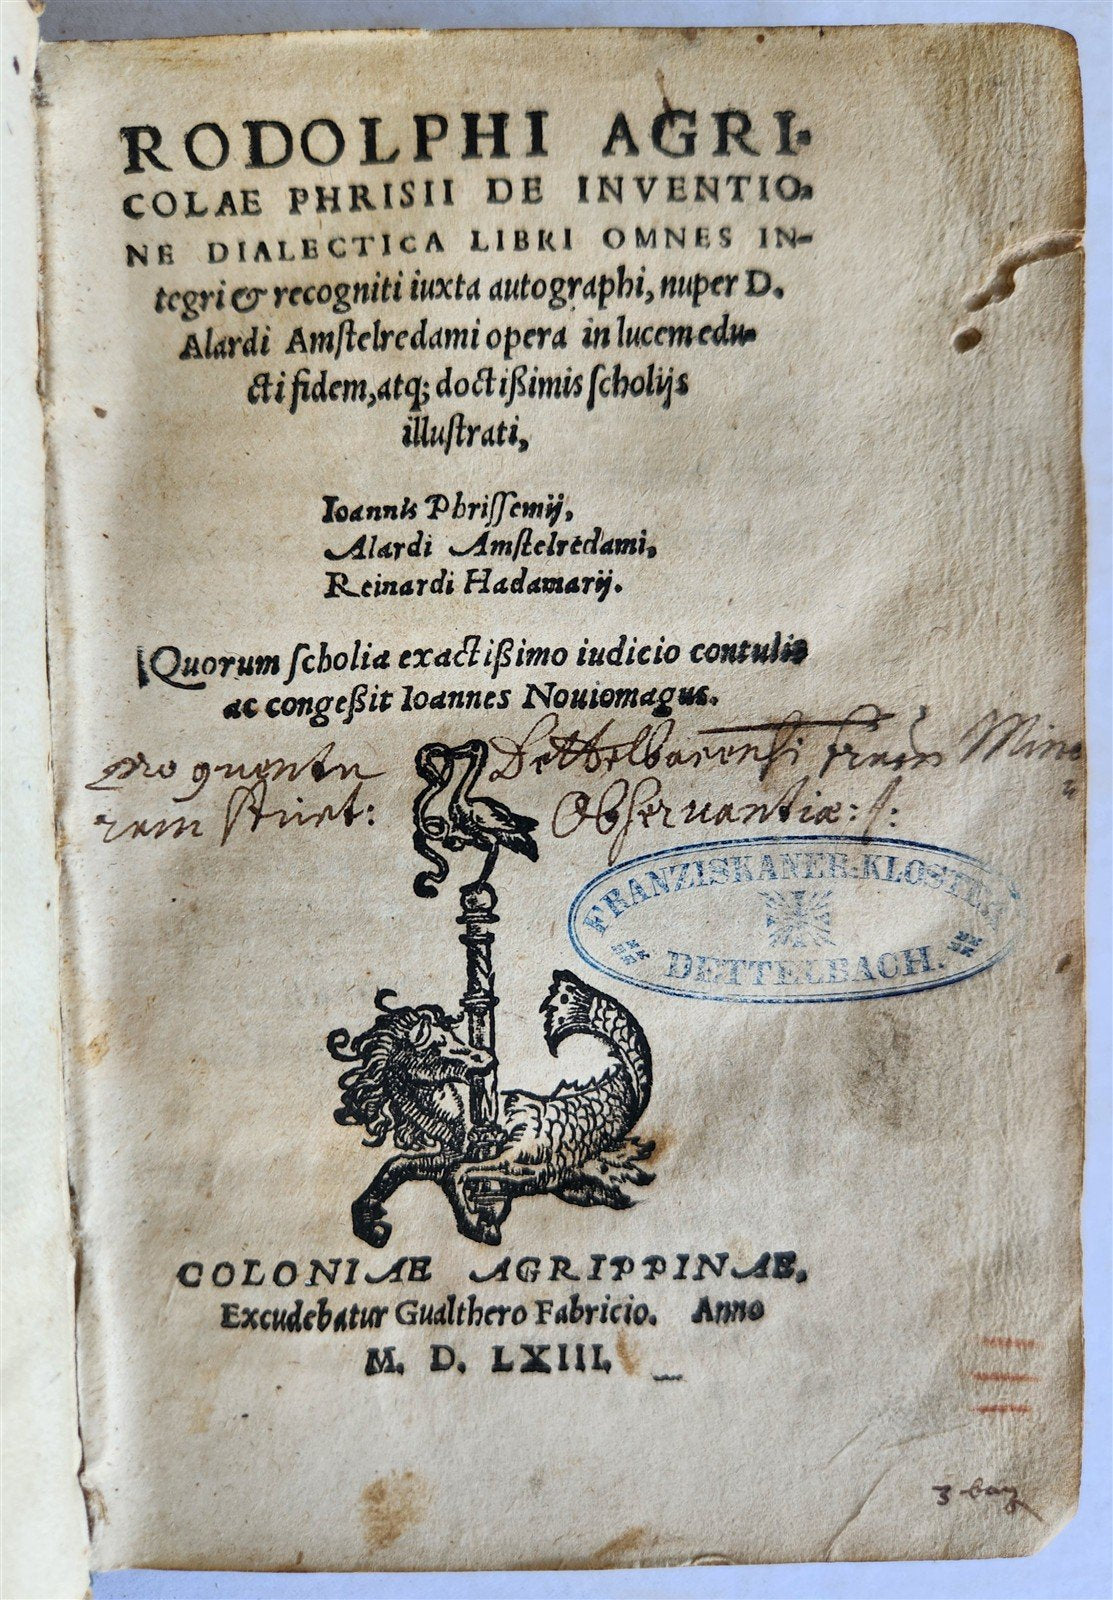 RODOLPHI AGRI-
COLAE PHRISII DE INVENTIO-
NE DIALECTICA LIBRI OMNES IN-
tegri & recogniti iuxta autographi, nuper D.
Alardi Amstelredami opera in lucem edu-
cti fidem, atq; doctißimis scholijs
illustrati,
Ioannis Phrissemij,
Alardi Amstelredami,
Reinardi Hadamarij.
Quorum scholia exactißimo iudicio contulit
ac congeßit Ioannes Nouiomagus.
Pro Conventu Dettelbacensi Min
strict: Observantiæ
FRANZISKANER-KLOSTER
DETTELBACH.
COLONIAE AGRIPPINAE,
Excudebatur Gualthero Fabricio. Anno
M. D. LXIII.
3